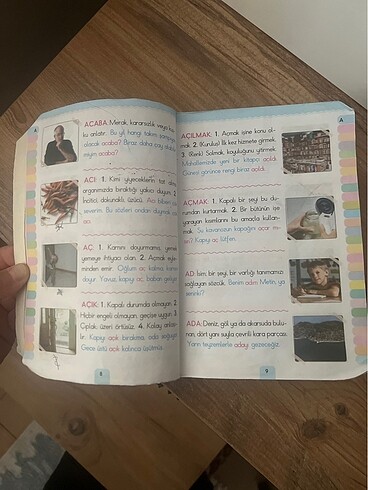 A
ACABA: Merak, kararsızlık veya kuş-
ku anlatır. Bu yıl hangi takım şampiyon
olacak acaba? Biraz daha
acaba?
ACI: 1. Kimi yiyeceklerin
organımızda bıraktığı yakıcı duyum. 2.
İncitici, dokunaklı, üzücü. Acı biberi
severim. Bu sözleri ondan duymak
acı.
AÇ: 1. Karnını doyurmamış, yemek
yemeye ihtiyacı olan. 2. Açmak eyle-
minden emir. Oğlum aç kalma,
doyur. Yavuz, kapıyı aç, baban geliyor.
AÇIK: 1. Kapalı durumda olmayan. 2.
Hiçbir engeli olmayan, geçişe uygun. 3.
Çıplak, üzeri örtüsüz. 4. Kolay
Kapıyı açık bırakma, oda
Gece üstü açık kalınca üşümüş.
8
A
AÇILMAK: 1. Açmak işine konu ol-
mak. 2. (Kuruluş) İlk kez hizmete girmek.
3. (Renk) Solmak, koyuluğunu yitirmek.
Mahallemizde yeni bir kitapçı açıldı.
Güneşi görünce rengi biraz açıldı.
AÇMAK: 1. Kapalı bir şeyi bu du-
rumdan kurtarmak. 2. Bir bütünün işe
yarayan kısımlarını bu amaçla kullan-
mak. Şu kavanozun kapağını açar mı-
sın? Kapıyı aç lütfen.
AD: İsim; bir şeyi, bir varlığı tanımamızı
sağlayan sözcük. Benim adım Metin, ya
seninki?
ADA: Deniz, göl ya da akarsuda bulu-
nan, dört yanı suyla çevrili kara parçası.
Yarın teyzemlerle adayı gezeceğiz.
9